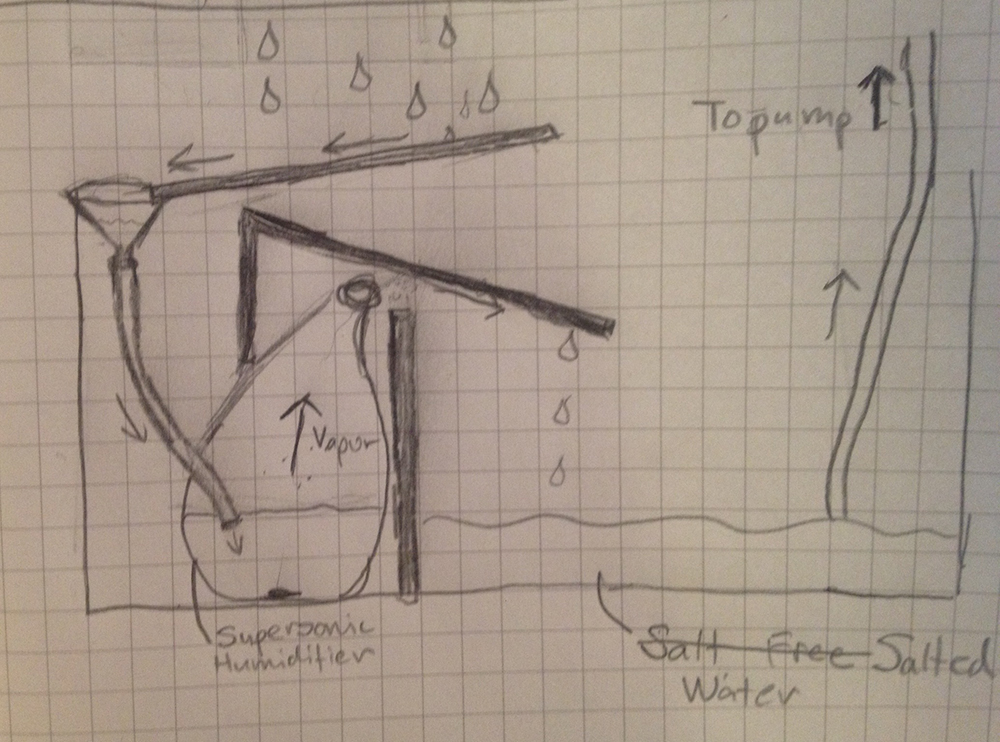 To pump
Vapor
Supersonic
Humidifier
Salt Free Salted
Water